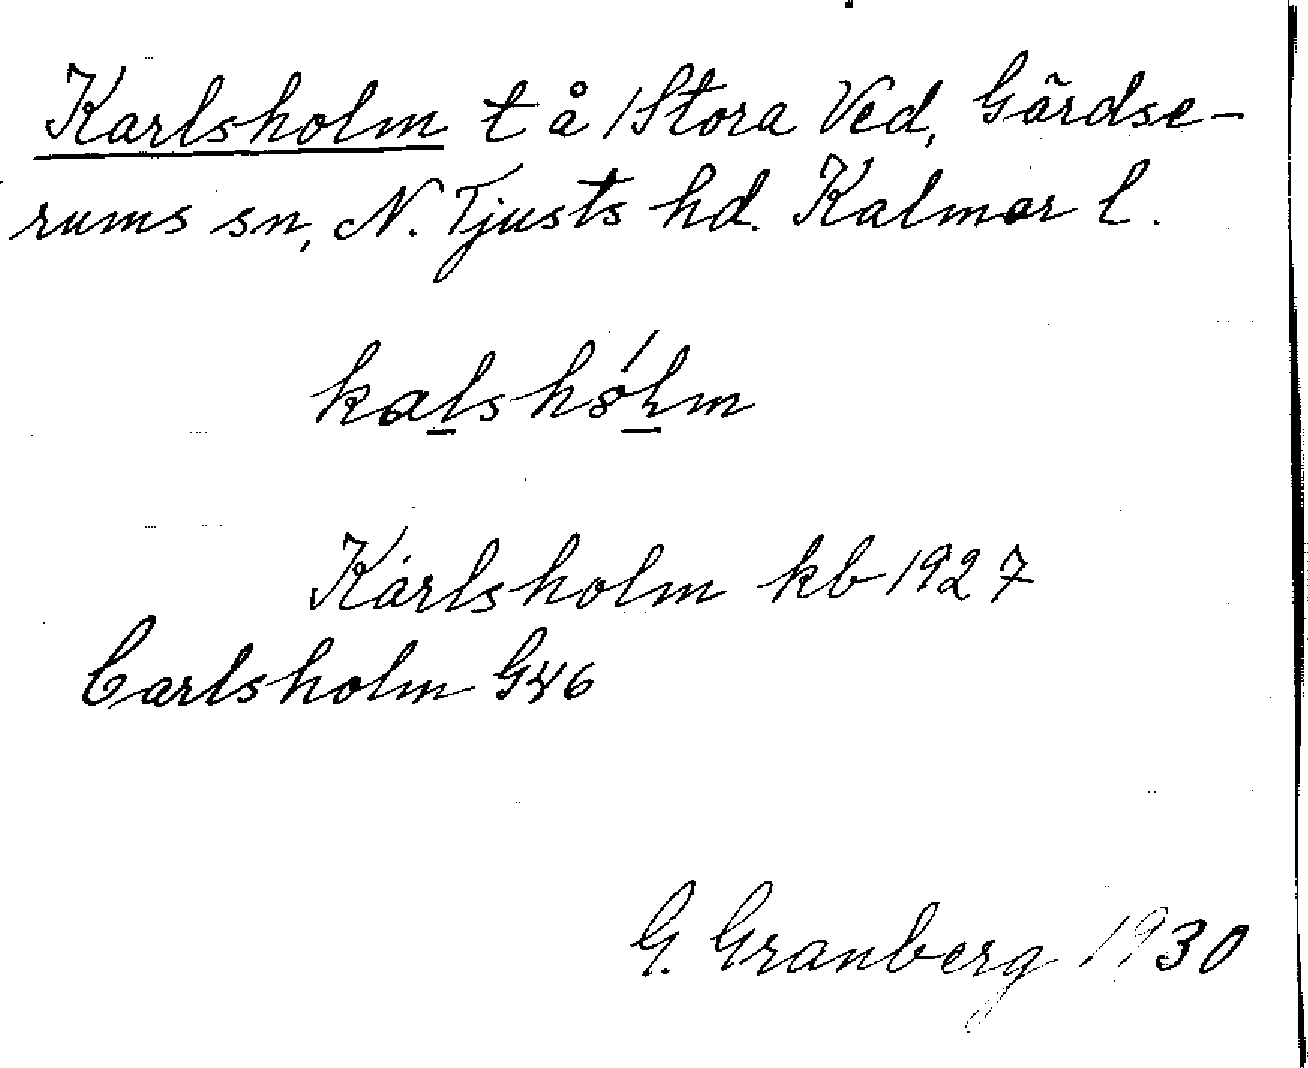 Karlsholm t å /Stora Ved, Gärdse-
rums sn, N. Tjusts hd. Kalmar l.
kalshólm
Karlsholm kb 1927
Carlsholm G46
G. Granberg 1930